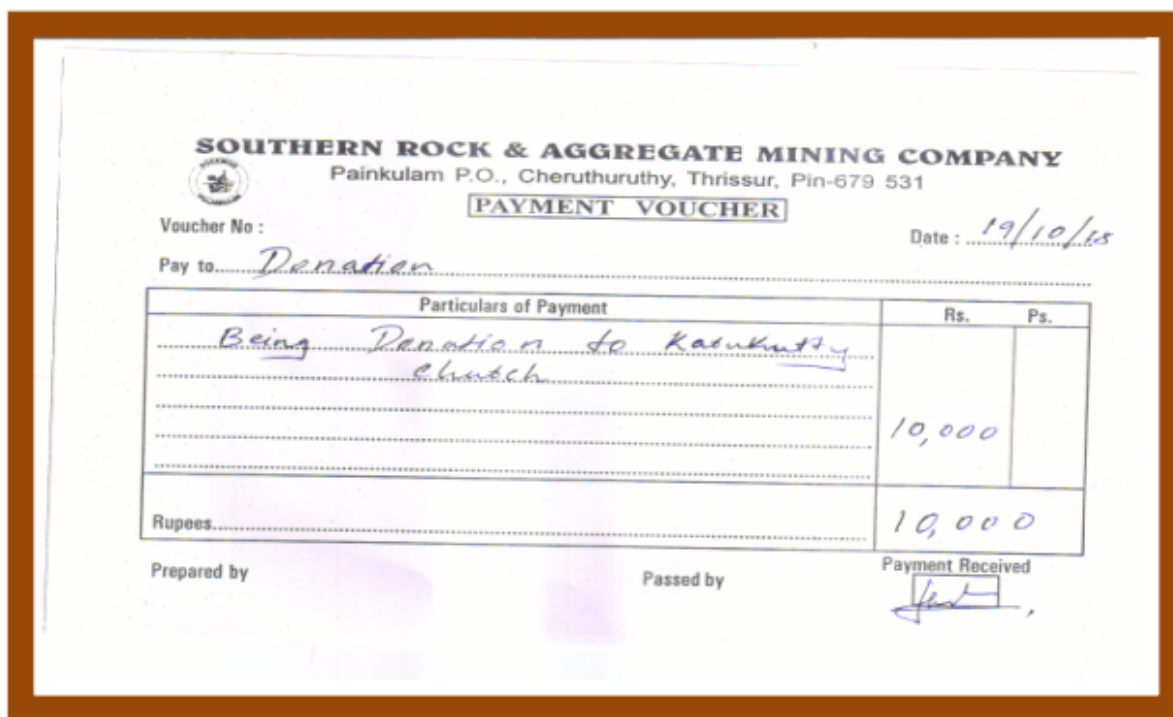 SOUTHERN ROCK & AGGREGATE MINING COMPANY
Painkulam P.O., Cheruthuruthy, Thrissur, Pin-679 531
PAYMENT VOUCHER
Voucher No :
Date : 19/10/18
Pay to Donation
Particulars of Payment Rs. Ps.
Being Donation to Katukutty
Church
10,000
Rupees 10,000
Prepared by Passed by Payment Received